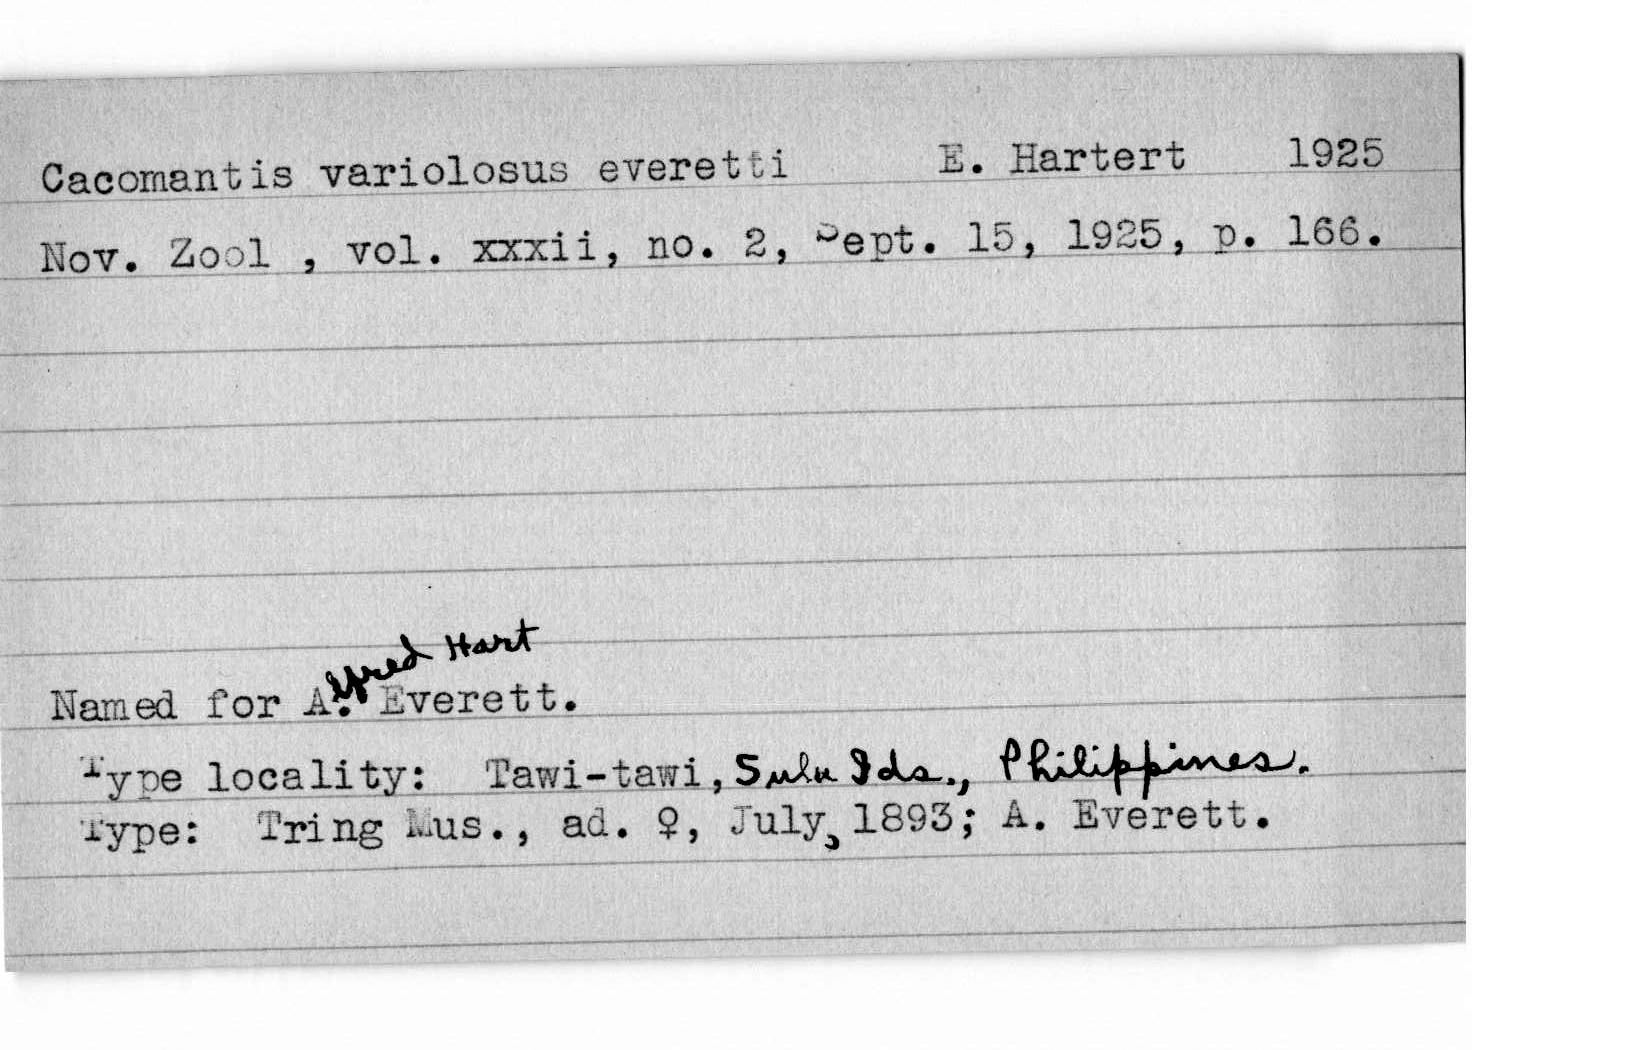 Cacomantis variolosus everetti E. Hartert 1925
Nov. Zool , vol. xxxii, no. 2, Sept. 15, 1925, p. 166.
Alfred Hart
Named for A. Everett.
Type locality: Tawi-tawi, Sulu Ids., Philippines.
Type: Tring Mus., ad. ♀, July, 1893; A. Everett.